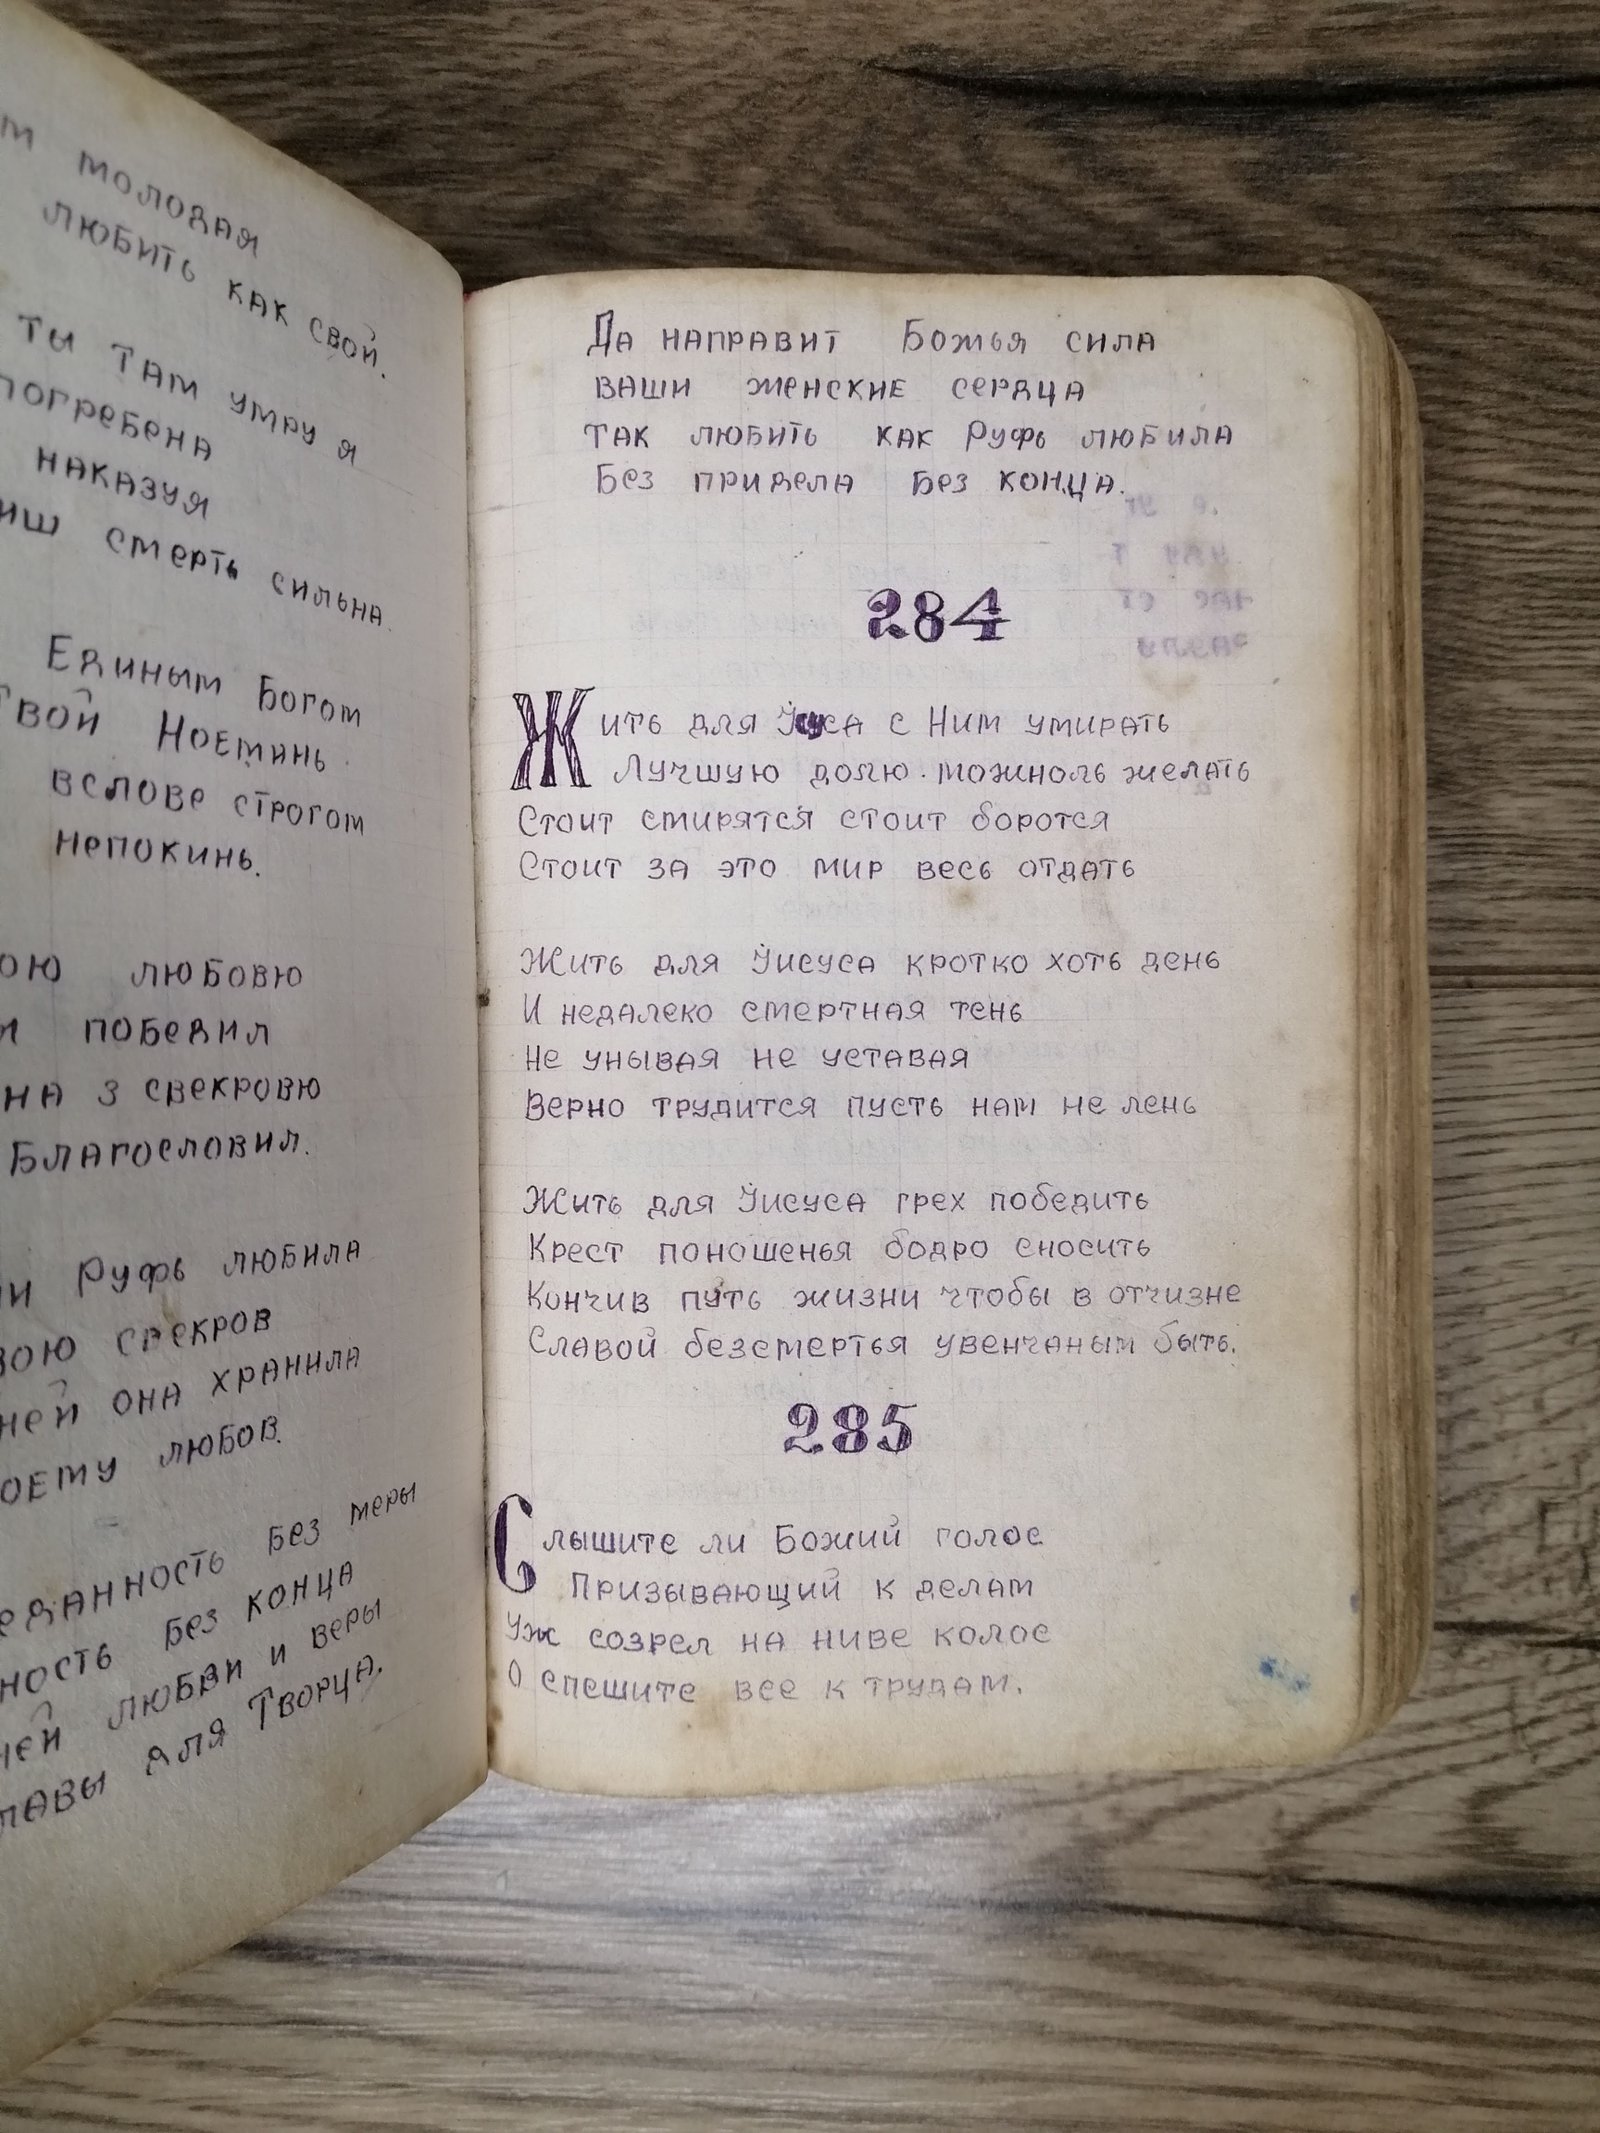 молодая
любить как свой.
ты там умру я
погребена
наказуя
смерть сильна.
Единым Богом
Твой Ноеминь
вслове строгом
непокинь.
любовю
победил
на з свекровю
Благословил.
Руфь любила
свекров
ней она хранила
любов.
Без меры
Без конца
любви и веры
для Творца.
Да направит Божья сила
ваши женские сердца
так любить как Руфь любила
Без придела Без конца.
284
Жить для Иуса с Ним умирать
Лучшую долю. можноль желать
Стоит смирятся стоит боротся
Стоит за это мир весь отдать
Жить для Иисуса кротко хоть день
И недалеко смертная тень
Не унывая не уставая
Верно трудится пусть нам не лень
Жить для Иисуса грех победить
Крест поношенья бодро сносить
Кончив путь жизни чтобы в отчизне
Славой безсмертья увенчаным быть.
285
Слышите ли Божий голос
Призывающий к делам
Уж созрел на ниве колос
О спешите все к трудам.